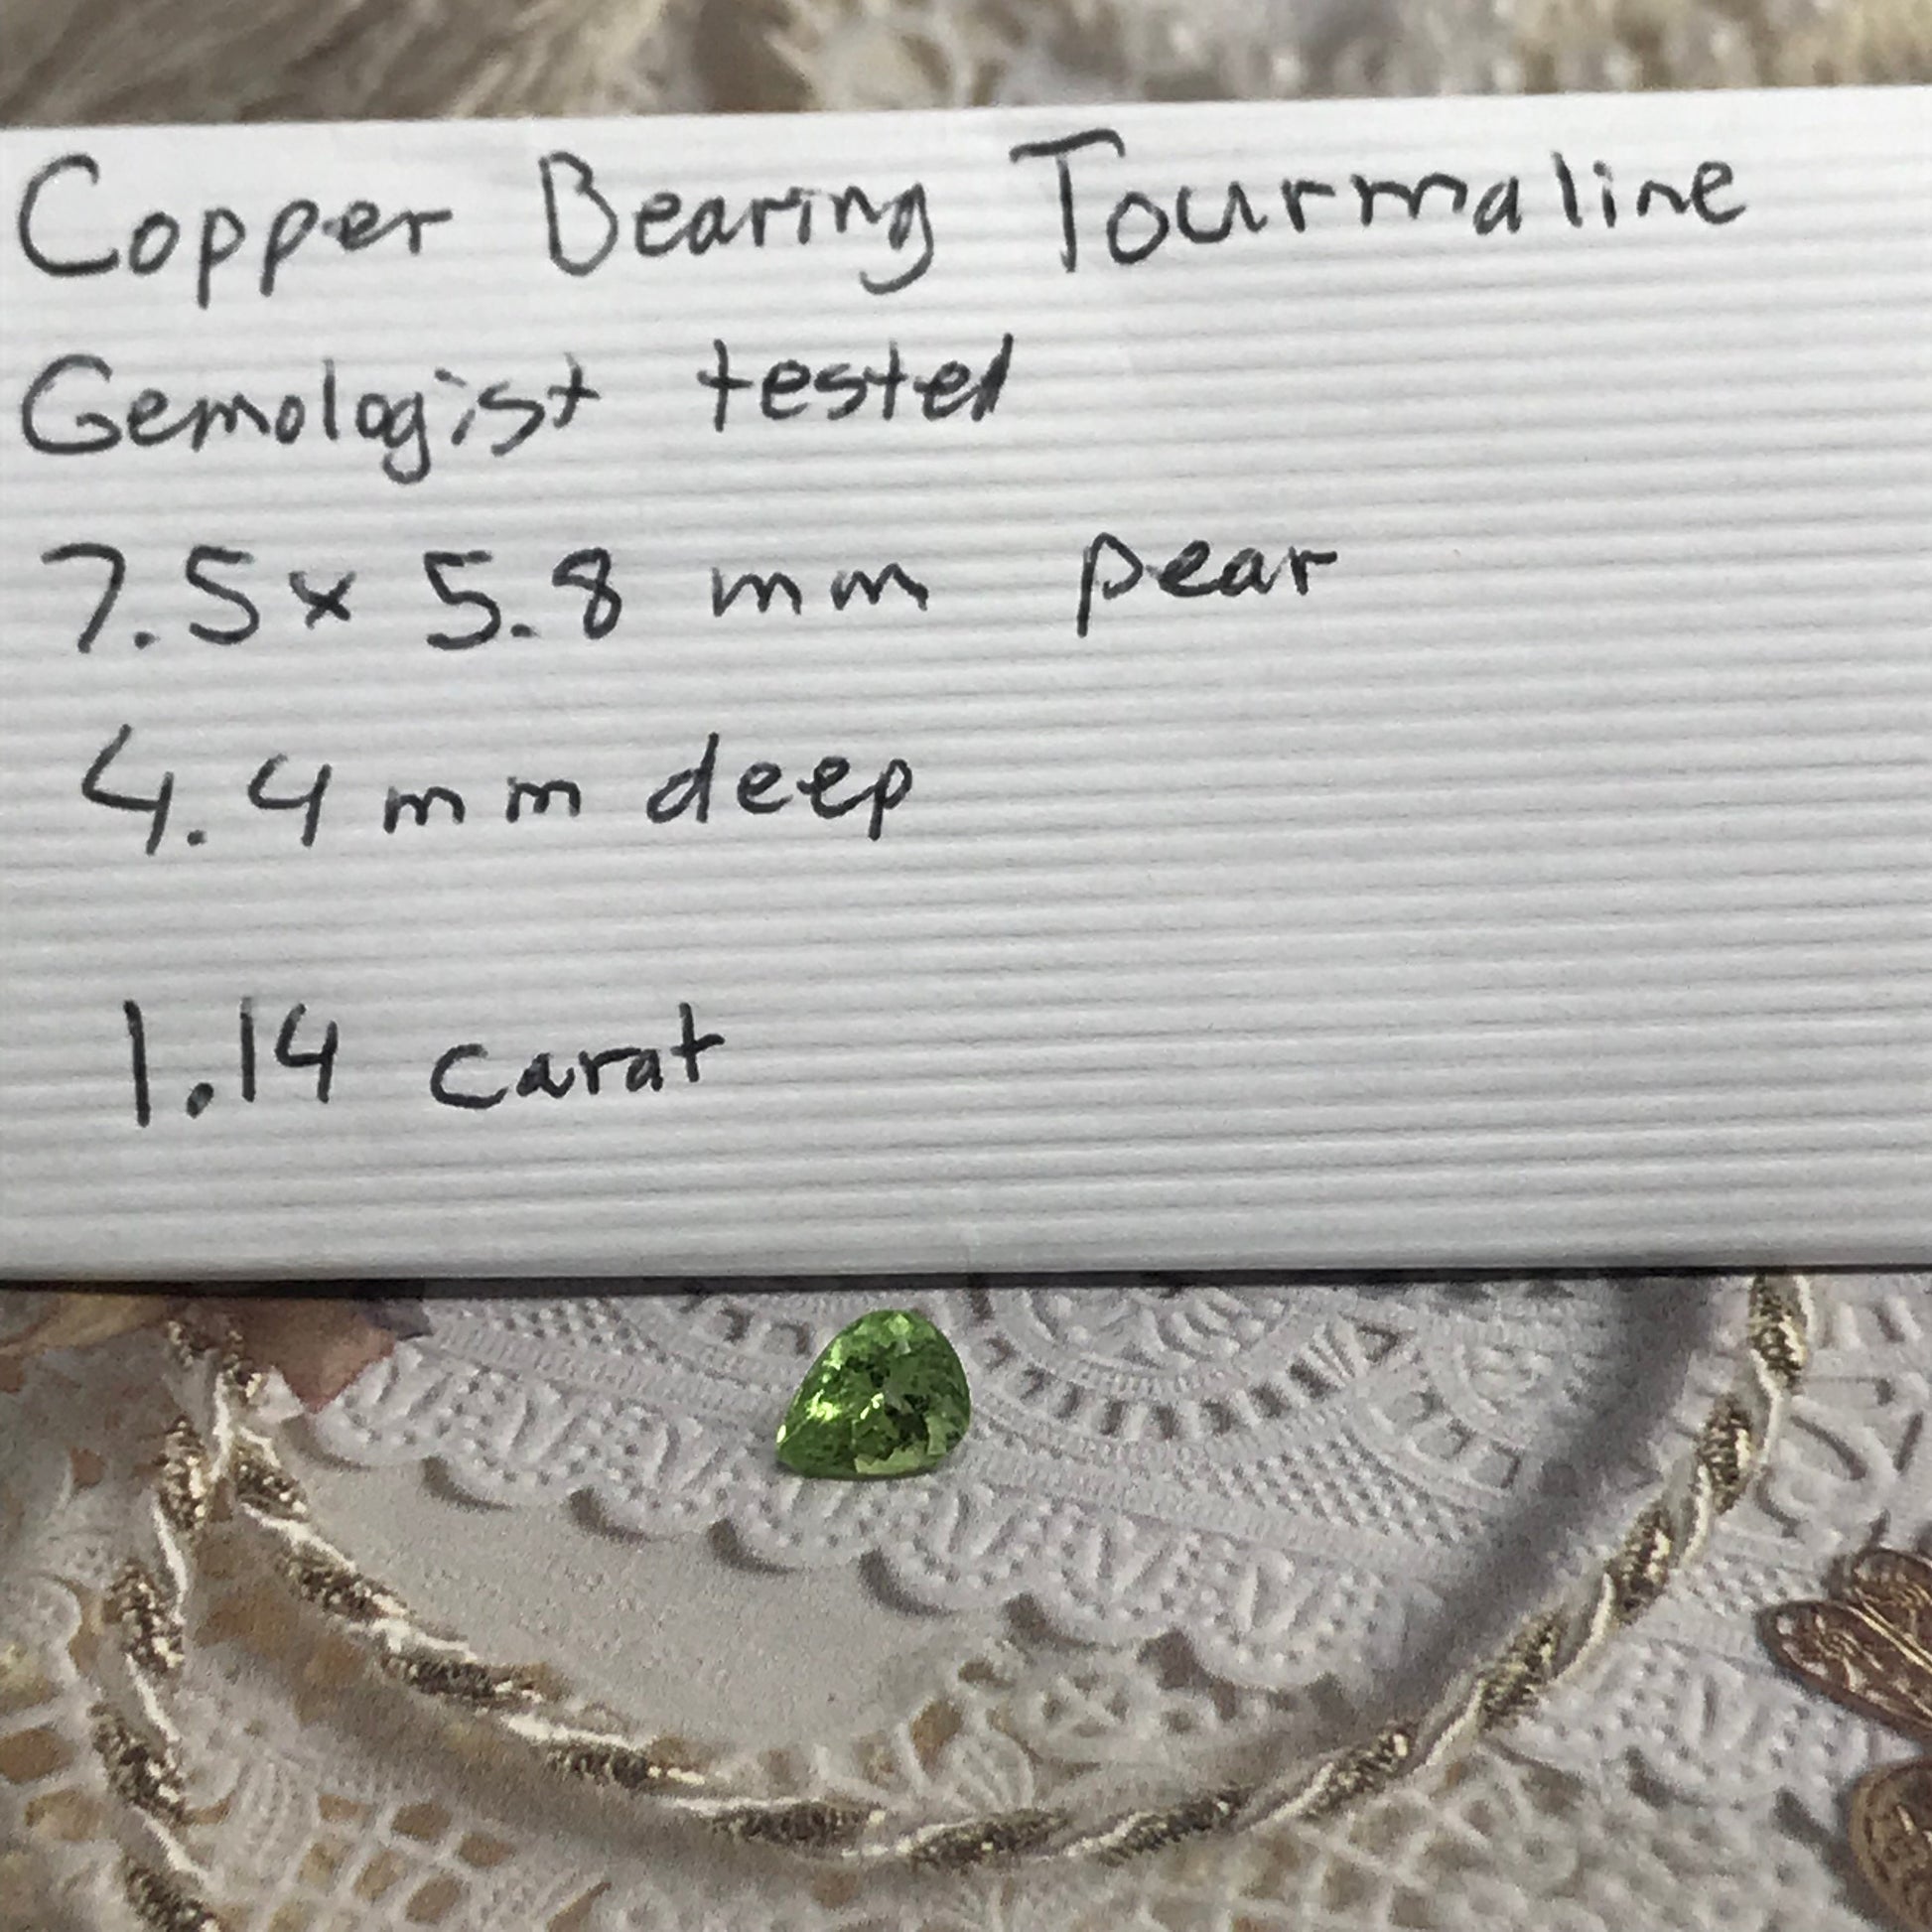 Copper Bearing Tourmaline
Gemologist tested
7.5 x 5.8 mm pear
4.4 mm deep
1.14 carat